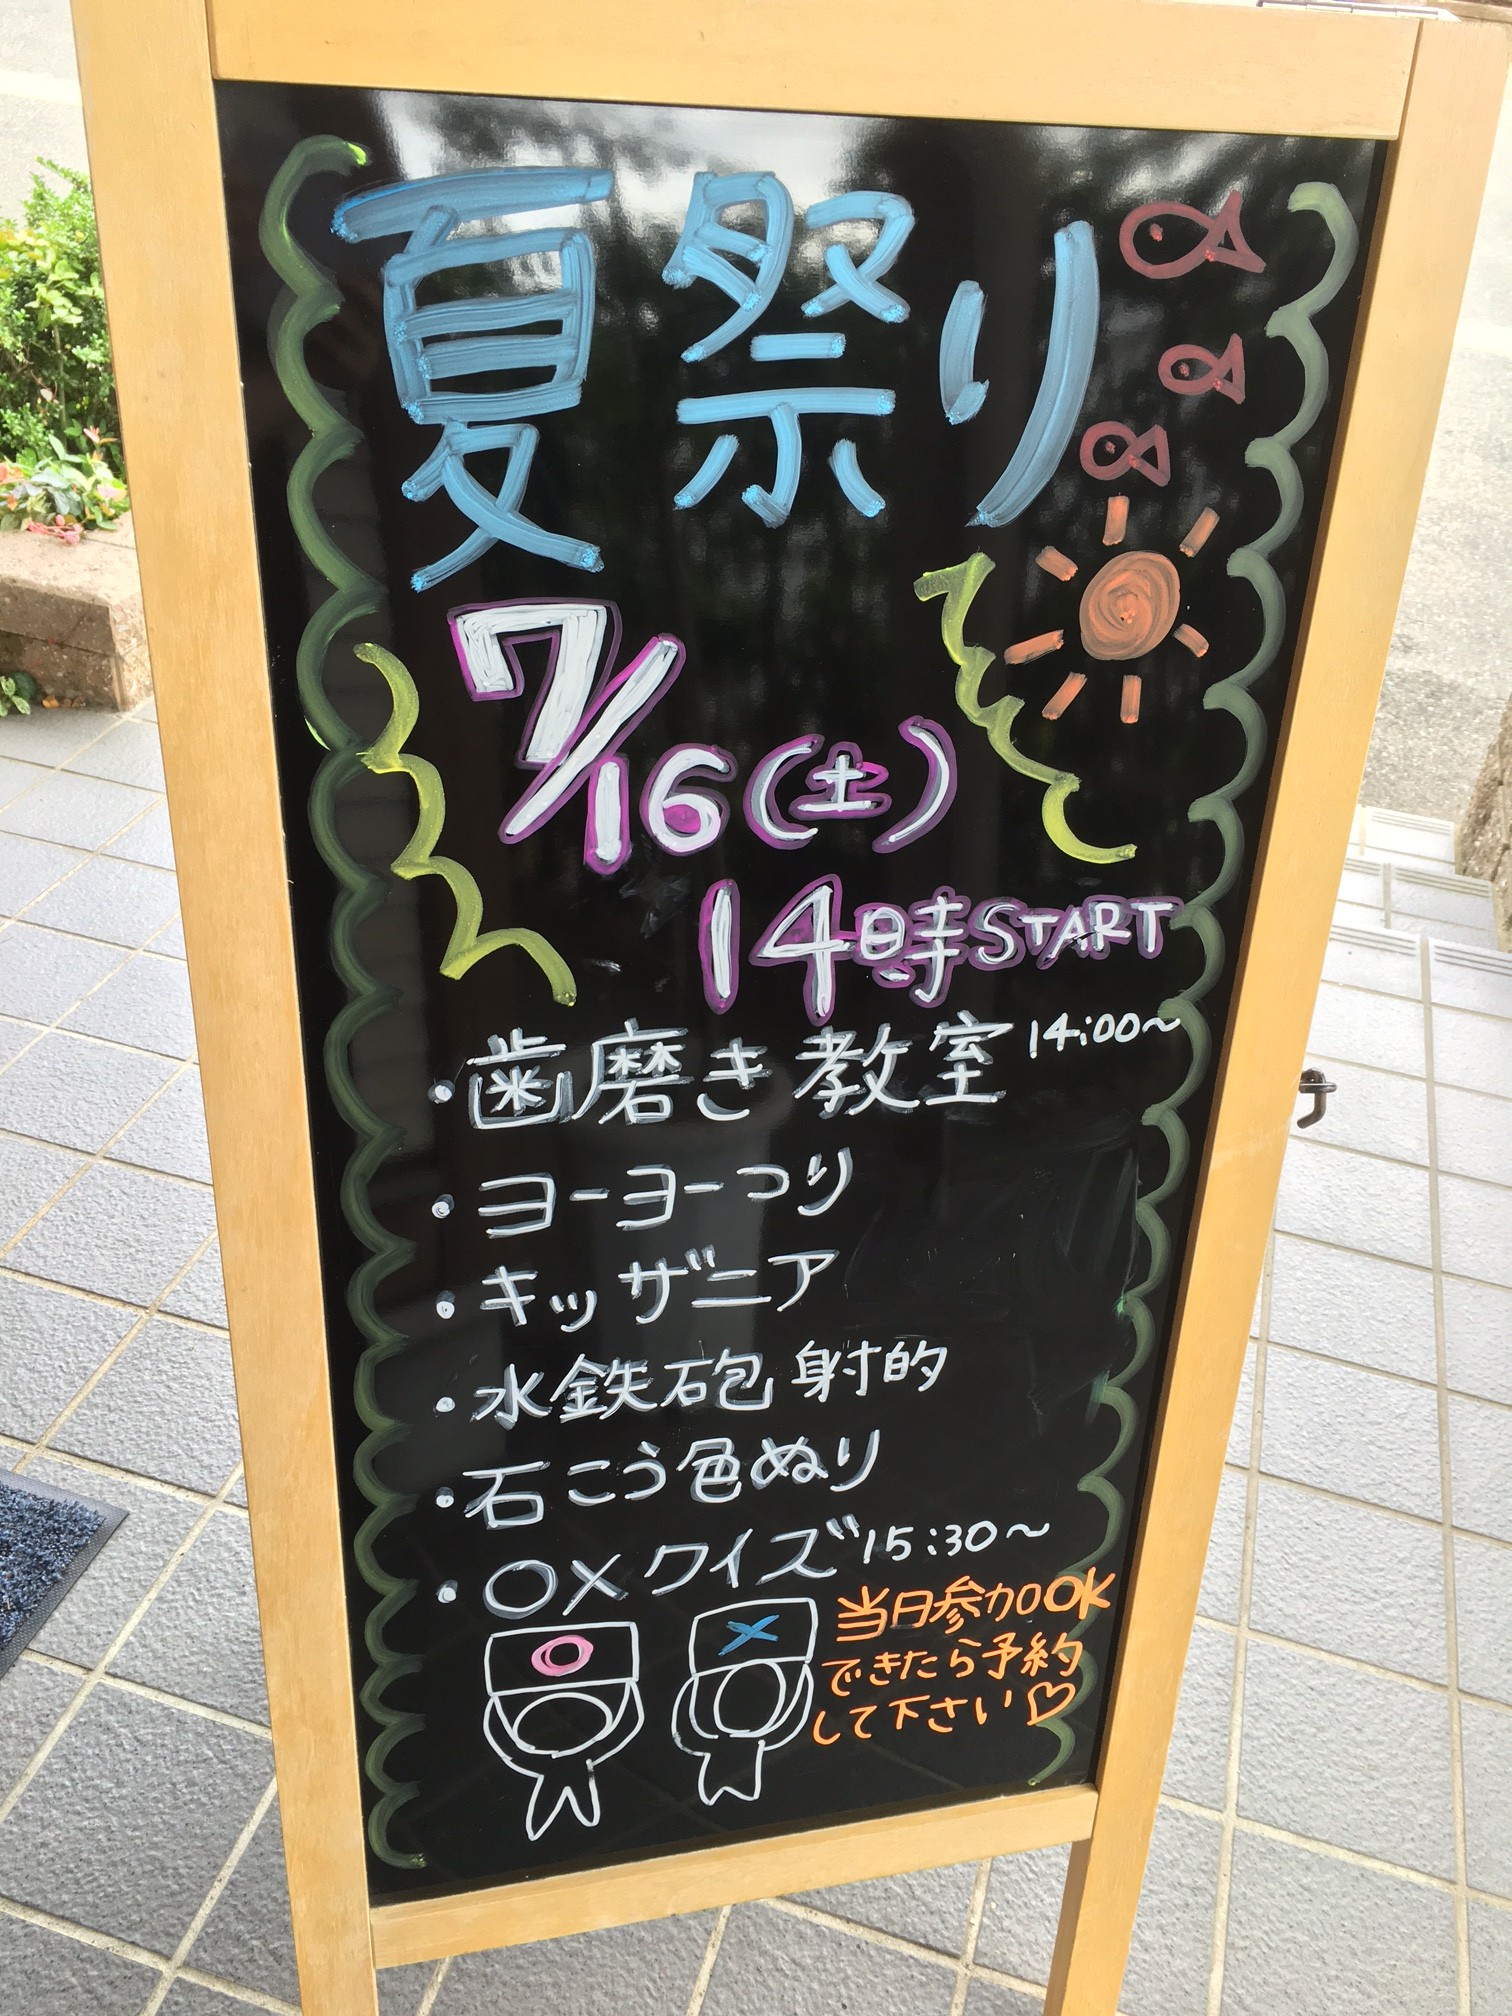 夏祭り
7/16(土)
14時START
・歯磨き教室 14:00～
・ヨーヨーつり
・キッザニア
・水鉄砲射的
・石こう色ぬり
・○×クイズ 15:30～
○ ×
当日参加OK
できたら予約
して下さい♡